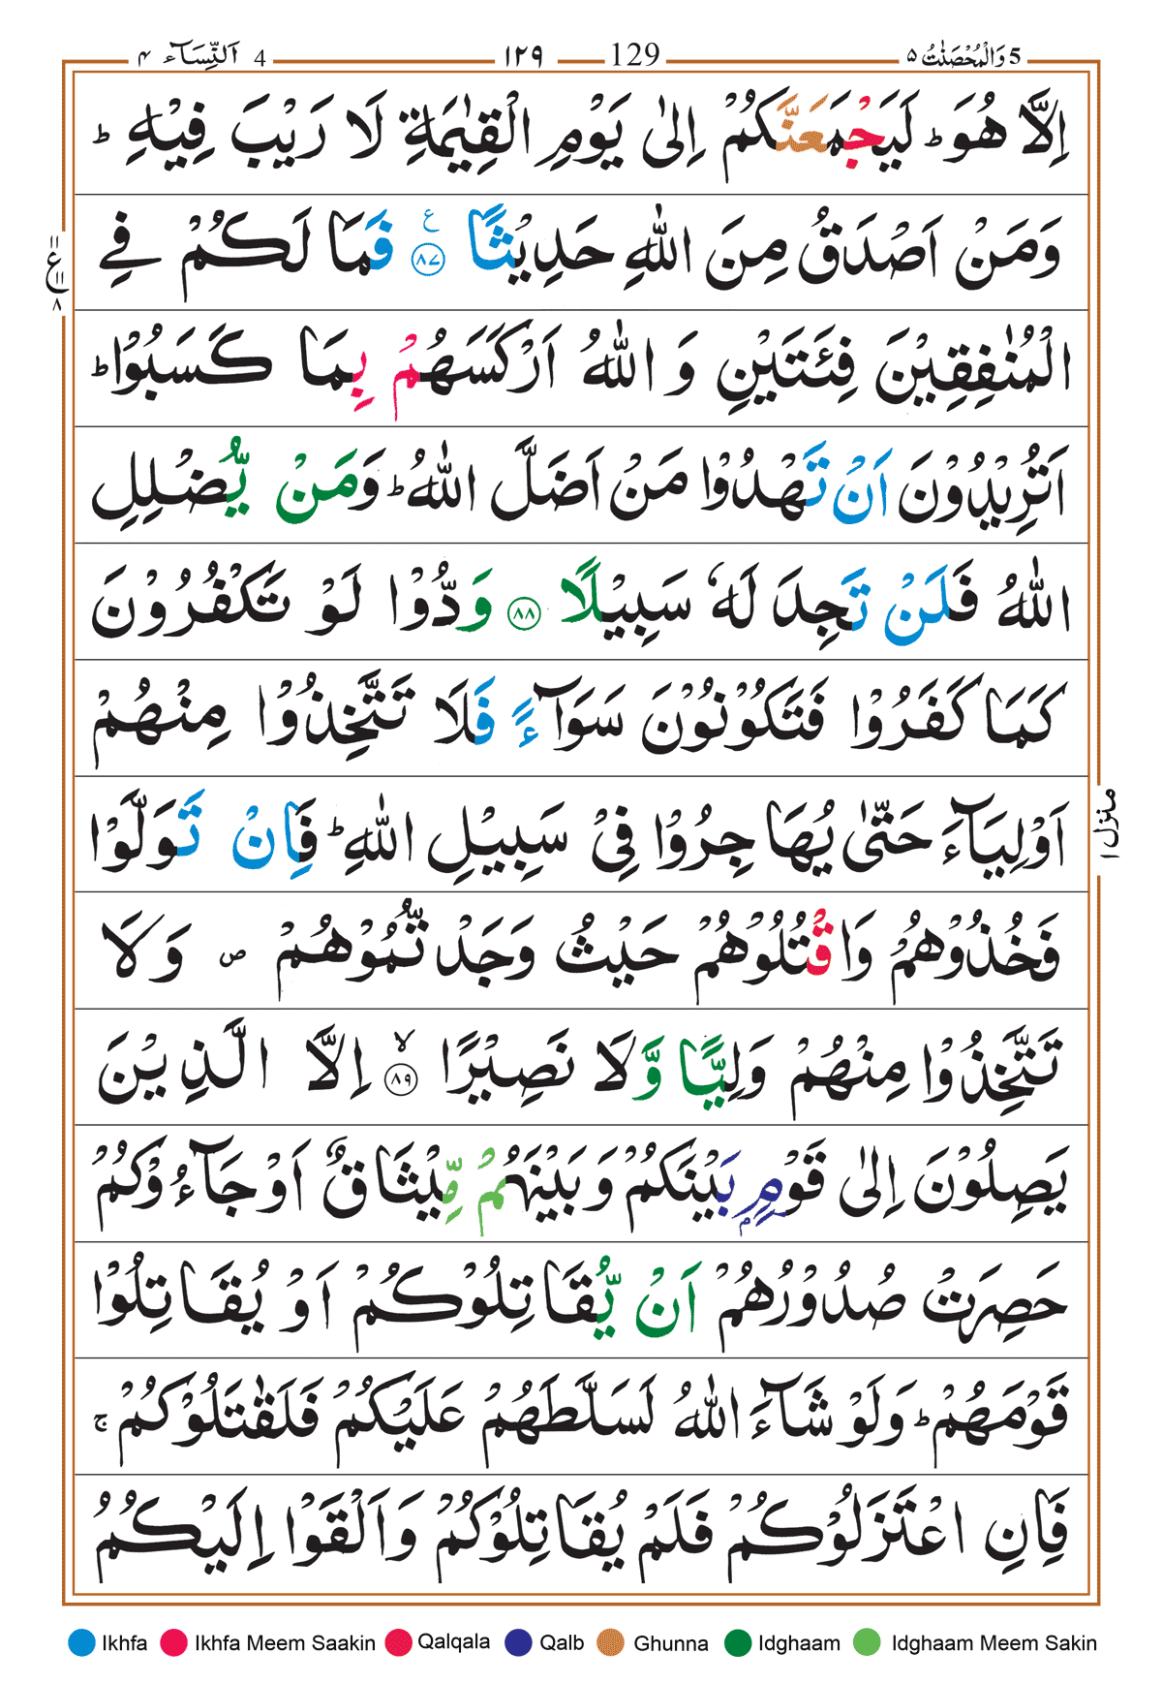 5 وَالْمُحْصَنٰتُ ٥ 129 ١٢٩ 4 اَلنِّسَآء ۴
اِلَّا هُوَ ؕ لَيَجْمَعَنَّكُمْ اِلٰى يَوْمِ الْقِيٰمَةِ لَا رَيْبَ فِيْهِ ؕ
وَمَنْ اَصْدَقُ مِنَ اللّٰهِ حَدِيْثًا ۝٨٧ ع فَمَا لَكُمْ فِي
ع ١١ ١١ ٨
الْمُنٰفِقِيْنَ فِئَتَيْنِ وَ اللّٰهُ اَرْكَسَهُمْ بِمَا كَسَبُوْا ؕ
اَتُرِيْدُوْنَ اَنْ تَهْدُوْا مَنْ اَضَلَّ اللّٰهُ ؕ وَمَنْ يُّضْلِلِ
اللّٰهُ فَلَنْ تَجِدَ لَهٗ سَبِيْلًا ۝٨٨ وَدُّوْا لَوْ تَكْفُرُوْنَ
كَمَا كَفَرُوْا فَتَكُوْنُوْنَ سَوَآءً فَلَا تَتَّخِذُوْا مِنْهُمْ
اَوْلِيَآءَ حَتّٰى يُهَاجِرُوْا فِيْ سَبِيْلِ اللّٰهِ ؕ فَاِنْ تَوَلَّوْا
منزل ١
فَخُذُوْهُمْ وَاقْتُلُوْهُمْ حَيْثُ وَجَدْتُّمُوْهُمْ ص وَلَا
تَتَّخِذُوْا مِنْهُمْ وَلِيًّا وَّلَا نَصِيْرًا ۝٨٩ لا اِلَّا الَّذِيْنَ
يَصِلُوْنَ اِلٰى قَوْمٍۭ بَيْنَكُمْ وَبَيْنَهُمْ مِّيْثَاقٌ اَوْ جَآءُوْكُمْ
حَصِرَتْ صُدُوْرُهُمْ اَنْ يُّقَاتِلُوْكُمْ اَوْ يُقَاتِلُوْا
قَوْمَهُمْ ؕ وَلَوْ شَآءَ اللّٰهُ لَسَلَّطَهُمْ عَلَيْكُمْ فَلَقٰتَلُوْكُمْ ۚ
فَاِنِ اعْتَزَلُوْكُمْ فَلَمْ يُقَاتِلُوْكُمْ وَاَلْقَوْا اِلَيْكُمُ
Ikhfa Ikhfa Meem Saakin Qalqala Qalb Ghunna Idghaam Idghaam Meem Sakin